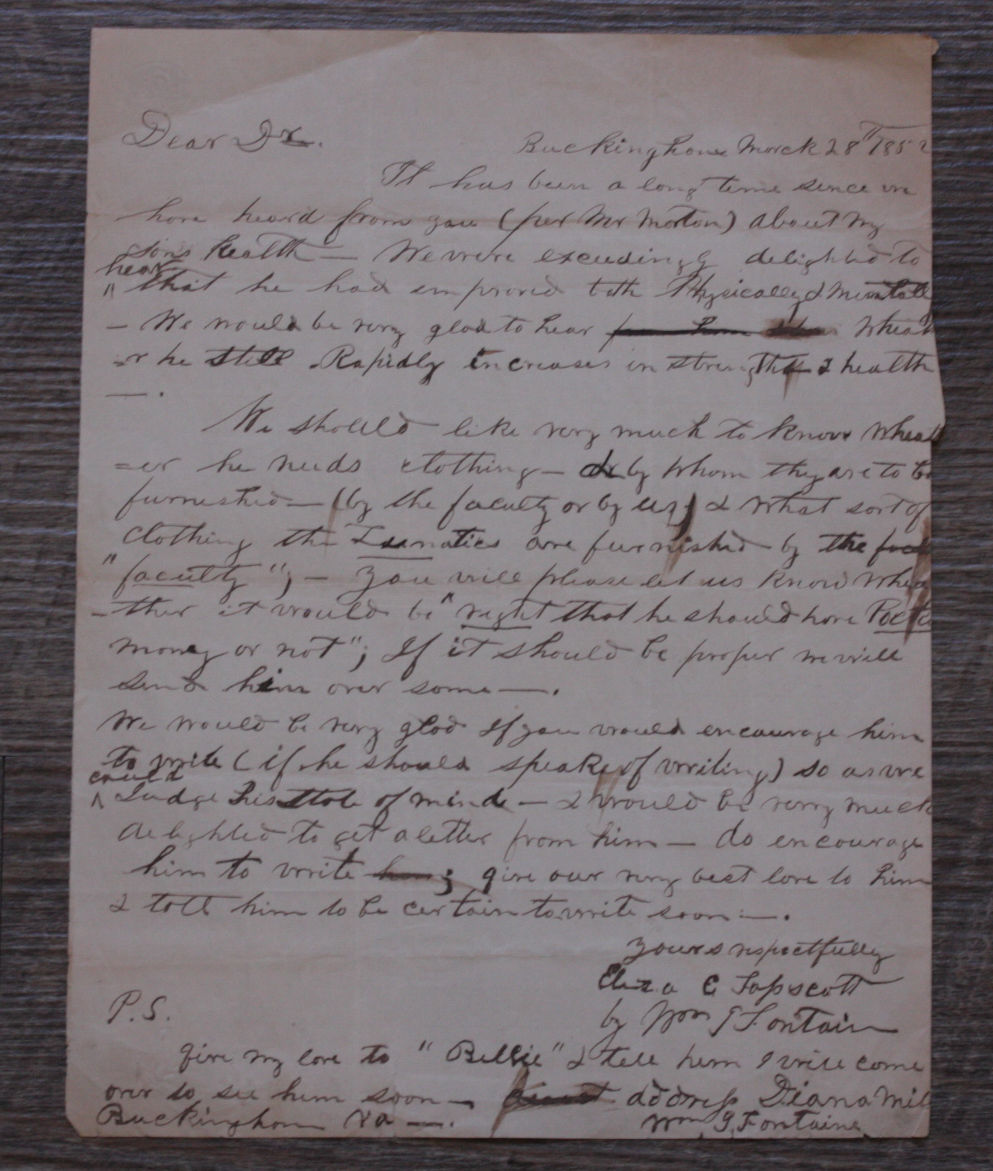 Dear Dr.
Buckingham March 28th 185
It has been a long time since we
have heard from you (per Mr Morton) about my
son's health — We were exceedingly delighted to
hear
" that he had improved both Physically & Mentally
— We would be very glad to hear Wheath
=er he still Rapidly increases in strength & health
— .
We should like very much to know Wheath
=er he needs clothing — & by Whom they are to be
furnished — (by the faculty or by us) & What sort of
clothing the Lunatics are furnished by the
"faculty"; — You will please let us know Whea
–ther it would be "right that he should have Pocket
money or not"; If it should be proper we will
send him over some — .
We would be very glad If you would encourage him
to write (if he should speak of writing) so as we
could
^ Judge his state of mind — I would be very much
delighted to get a letter from him — do encourage
him to write ; give our very best love to him
& tell him to be certain to write soon — .
Yours respectfully
Eliza C Tapscott
by Wm G Fontain
P.S.
give my love to "Billie" & tell him I will come
over to see him soon — address Diana Mil
Buckingham Va — .
Wm G. Fontaine